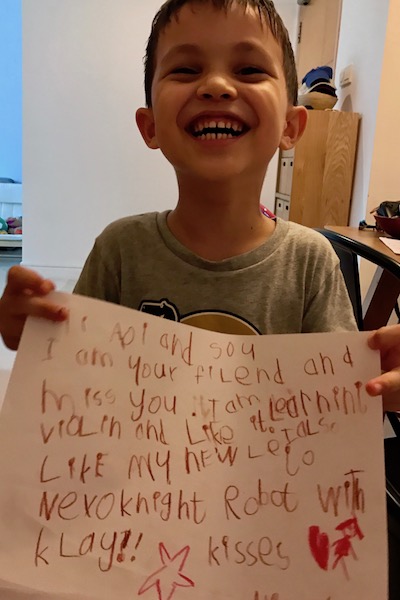 Hi Aoi and sou
I am your friend and
miss you. I am LEarnini
violin and Like it. I ALS
LiKE My NEW LEGo
NEXoKnight RoBot With
KLAY!! Kisses